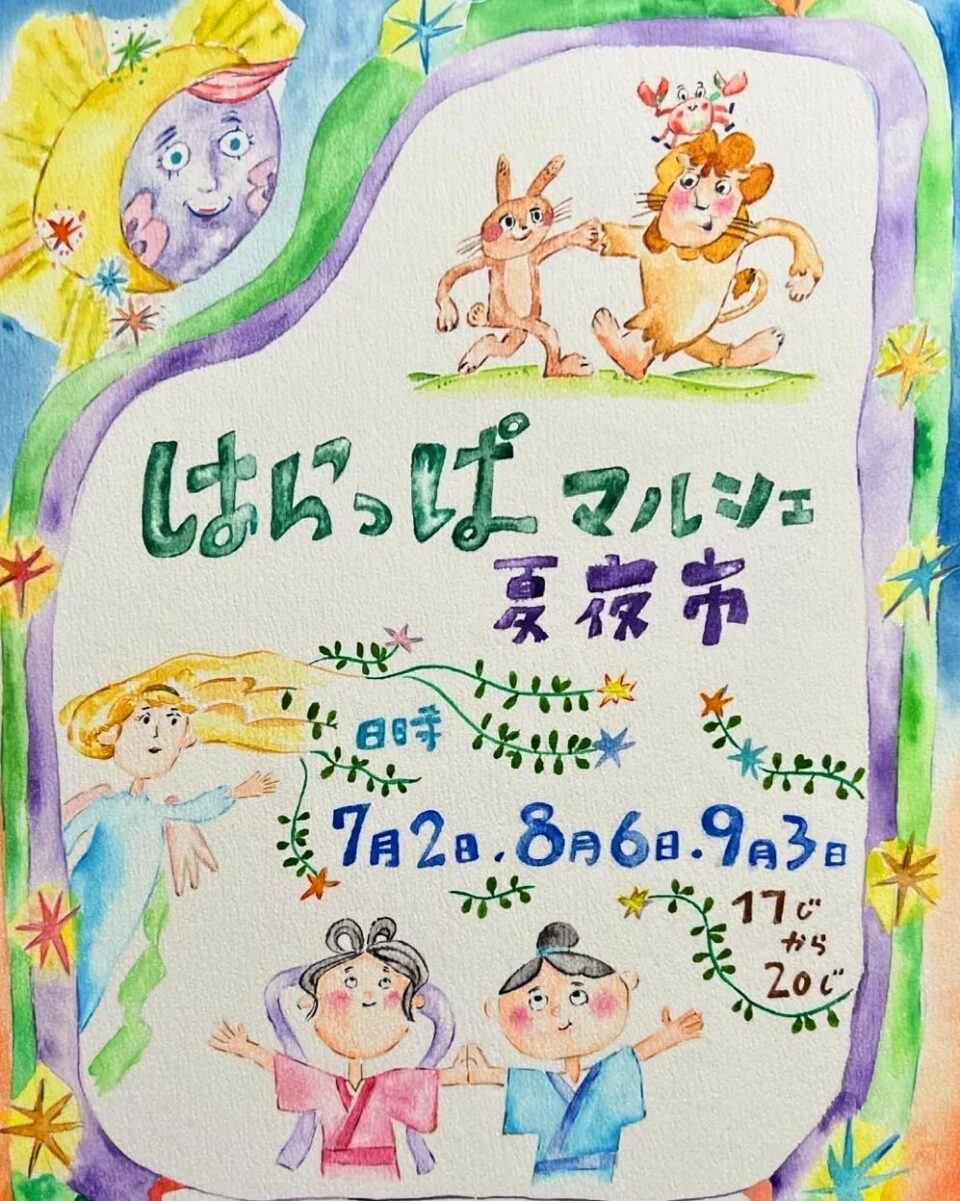 はらっぱ マルシェ
夏夜市
日時
7月2日.8月6日.9月3日
17じ
から
20じ